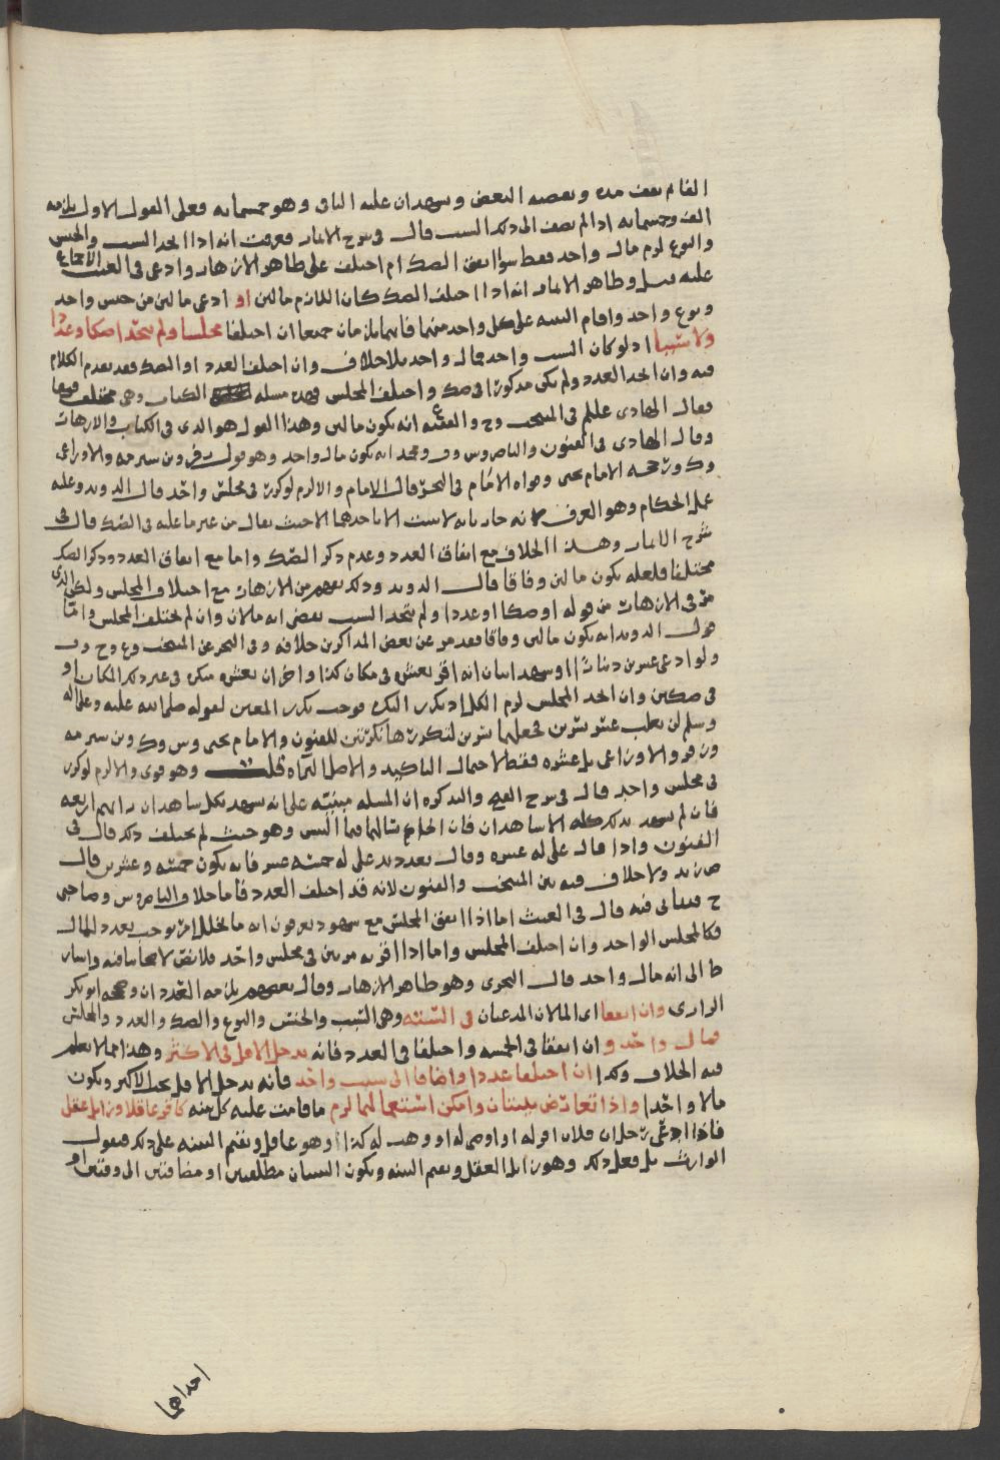 الفا ثم يصف مده وبعضه البعض ويشهدان عليه الباقي وهو خمسمائة فعلى القول الاول يلزمه
الف وخمسمائة اذا لم يضف الى ذلك السبب قال في شرح الاثمار فعرفت انه اذا اتحد السبب والجنس
والنوع لزم مال واحد فقط سوا اتفق الصك ام اختلف على ظاهر الازهار وادعى في الغيث الاجماع
عليه وظاهر الاثمار انه اذا اختلف الصك كان اللازم مالين او ادعى مالين من جنس واحد
ونوع واحد واقام البينه على كل واحد منهما فانهما يلزمان جميعا ان اختلفا مجلسا ولم يتحدا صكا وعددا
ولا سببا اذ لو كان السبب واحد فمال واحد بلا خلاف وان اختلف العدد او الصك فقد تقدم الكلام
فيه وان اتحد العدد ولم يكن مذكورا في صك واختلف المجلس فهذه مسله الكتاب وهي مختلف فيها
فقال الهادي عليلم في المنتخب وح انه يكون مالين وهذا القول هو الذي في الكتاب والازهار
وقال الهادي في الفنون والناصر وس وف ومحمد انه يكون مال واحد وهو قول والاوزاعي
وك وصححه الامام يحيى وقواه الامام في البحر قال الامام والا لزم لو كرره في مجلس واحد قال الدويد وعليه
عمل الحكام وهو العرف لا يثبت الا باحدهما الا حيث يقال من غير ما عليه في الصك قال في
شرح الاثمار وهذا الخلاف مع اتفاق العدد وعدم ذكر الصك واما مع اتفاق العدد وذكر الصك
مختلفا فلعله يكون مالين وفاقا قال الدويد وذكر بعضهم من الازهار مع اختلاف المجلس ولكن الذي
مر في الازهار من قوله او صكا او عددا ولم يتحد السبب يقضي انه مالان وان لم يختلف المجلس واما
قول الدويد انه يكون مالين وفاقا فقد مر عن بعض المذاكرين خلافه وفي البحر عن المنتخب وع وح وف
ولو ادعى عشرين دينارا وشهد اثنان انه اقر بعشره في مكان كذا واخران بعشره منكره في غير ذلك المكان او
في صكين وان اتحد المجلس لزم الكل اذ تكرر النكره يوجب تكرر المعين لقوله صلى الله عليه وعلى اله
وسلم لن يغلب عسر يسرين فجعلهما يسرين لتكررهما نكرتين للفنون والامام يحيى وس وك وبن سبرمه
وزفر والاوزاعي بل عشره فقط لاحتمال التاكيد والاصل البراه قلت وهو قوي والا لزم لو كرر
في مجلس واحد قال في شرح الفتح والتذكره ان المسله مبنيه على انه شهد بكل شاهدان اربعه
فان لم يشهد بذلك كله الا شاهدان فان الحاكم يسالهما فيما التبس وهو حيث لم يختلف ذلك قال في
الفنون واذا قال علي له عشره وقال بعد ذلك علي له خمسه عشر فانه يكون خمسه وعشرين قال
ض زيد ولا خلاف فيه بين المنتخب والفنون لانه قد اختلف العدد فاما خلاف الناصر وس وصاحبي
ح فباق فيه قال في الغيث اما اذا اتفق المجلس مع شهود يعرفون انه ما تخلل امر يوجب تعدد المال
فكالمجلس الواحد وان اختلف المجلس واما اذا اقر به مرتين في مجلس واحد فلا نص لاصحابنا فيه واشار
ط الى انه مال واحد قال النجري وهو ظاهر الازهار وقال بعضهم يلزمه العددان وصححه ابو بكر
الرازي وان اتفقا اي المالان المدعيان في السته وهي السبب والجنس والنوع والصك والعدد والمجلس
فمال واحد و ان اتفقا في الخمسه واختلفا في العدد فانه يدخل الاقل في الاكثر وهذا مما لا يعلم
فيه الخلاف وكذا ان اختلفا عددا واضافا الى سبب واحد فانه يدخل الاقل تحت الاكثر ويكون
مالا واحدا واذا تعارض بينتان وامكن استعمالهما لزم ما قامت عليه كل منه كاقر عاقلا وزايل عقل
فاذا ادعى رجل ان فلان اقر له او اوصى له او وهب له كذا وهو عاقل ويقيم البينه على ذلك فيقول
الوارث بل فعل ذلك وهو زايل العقل ويقيم البينه ويكون البينتان مطلقتين او مضافتين الى وقتين او
احداهما